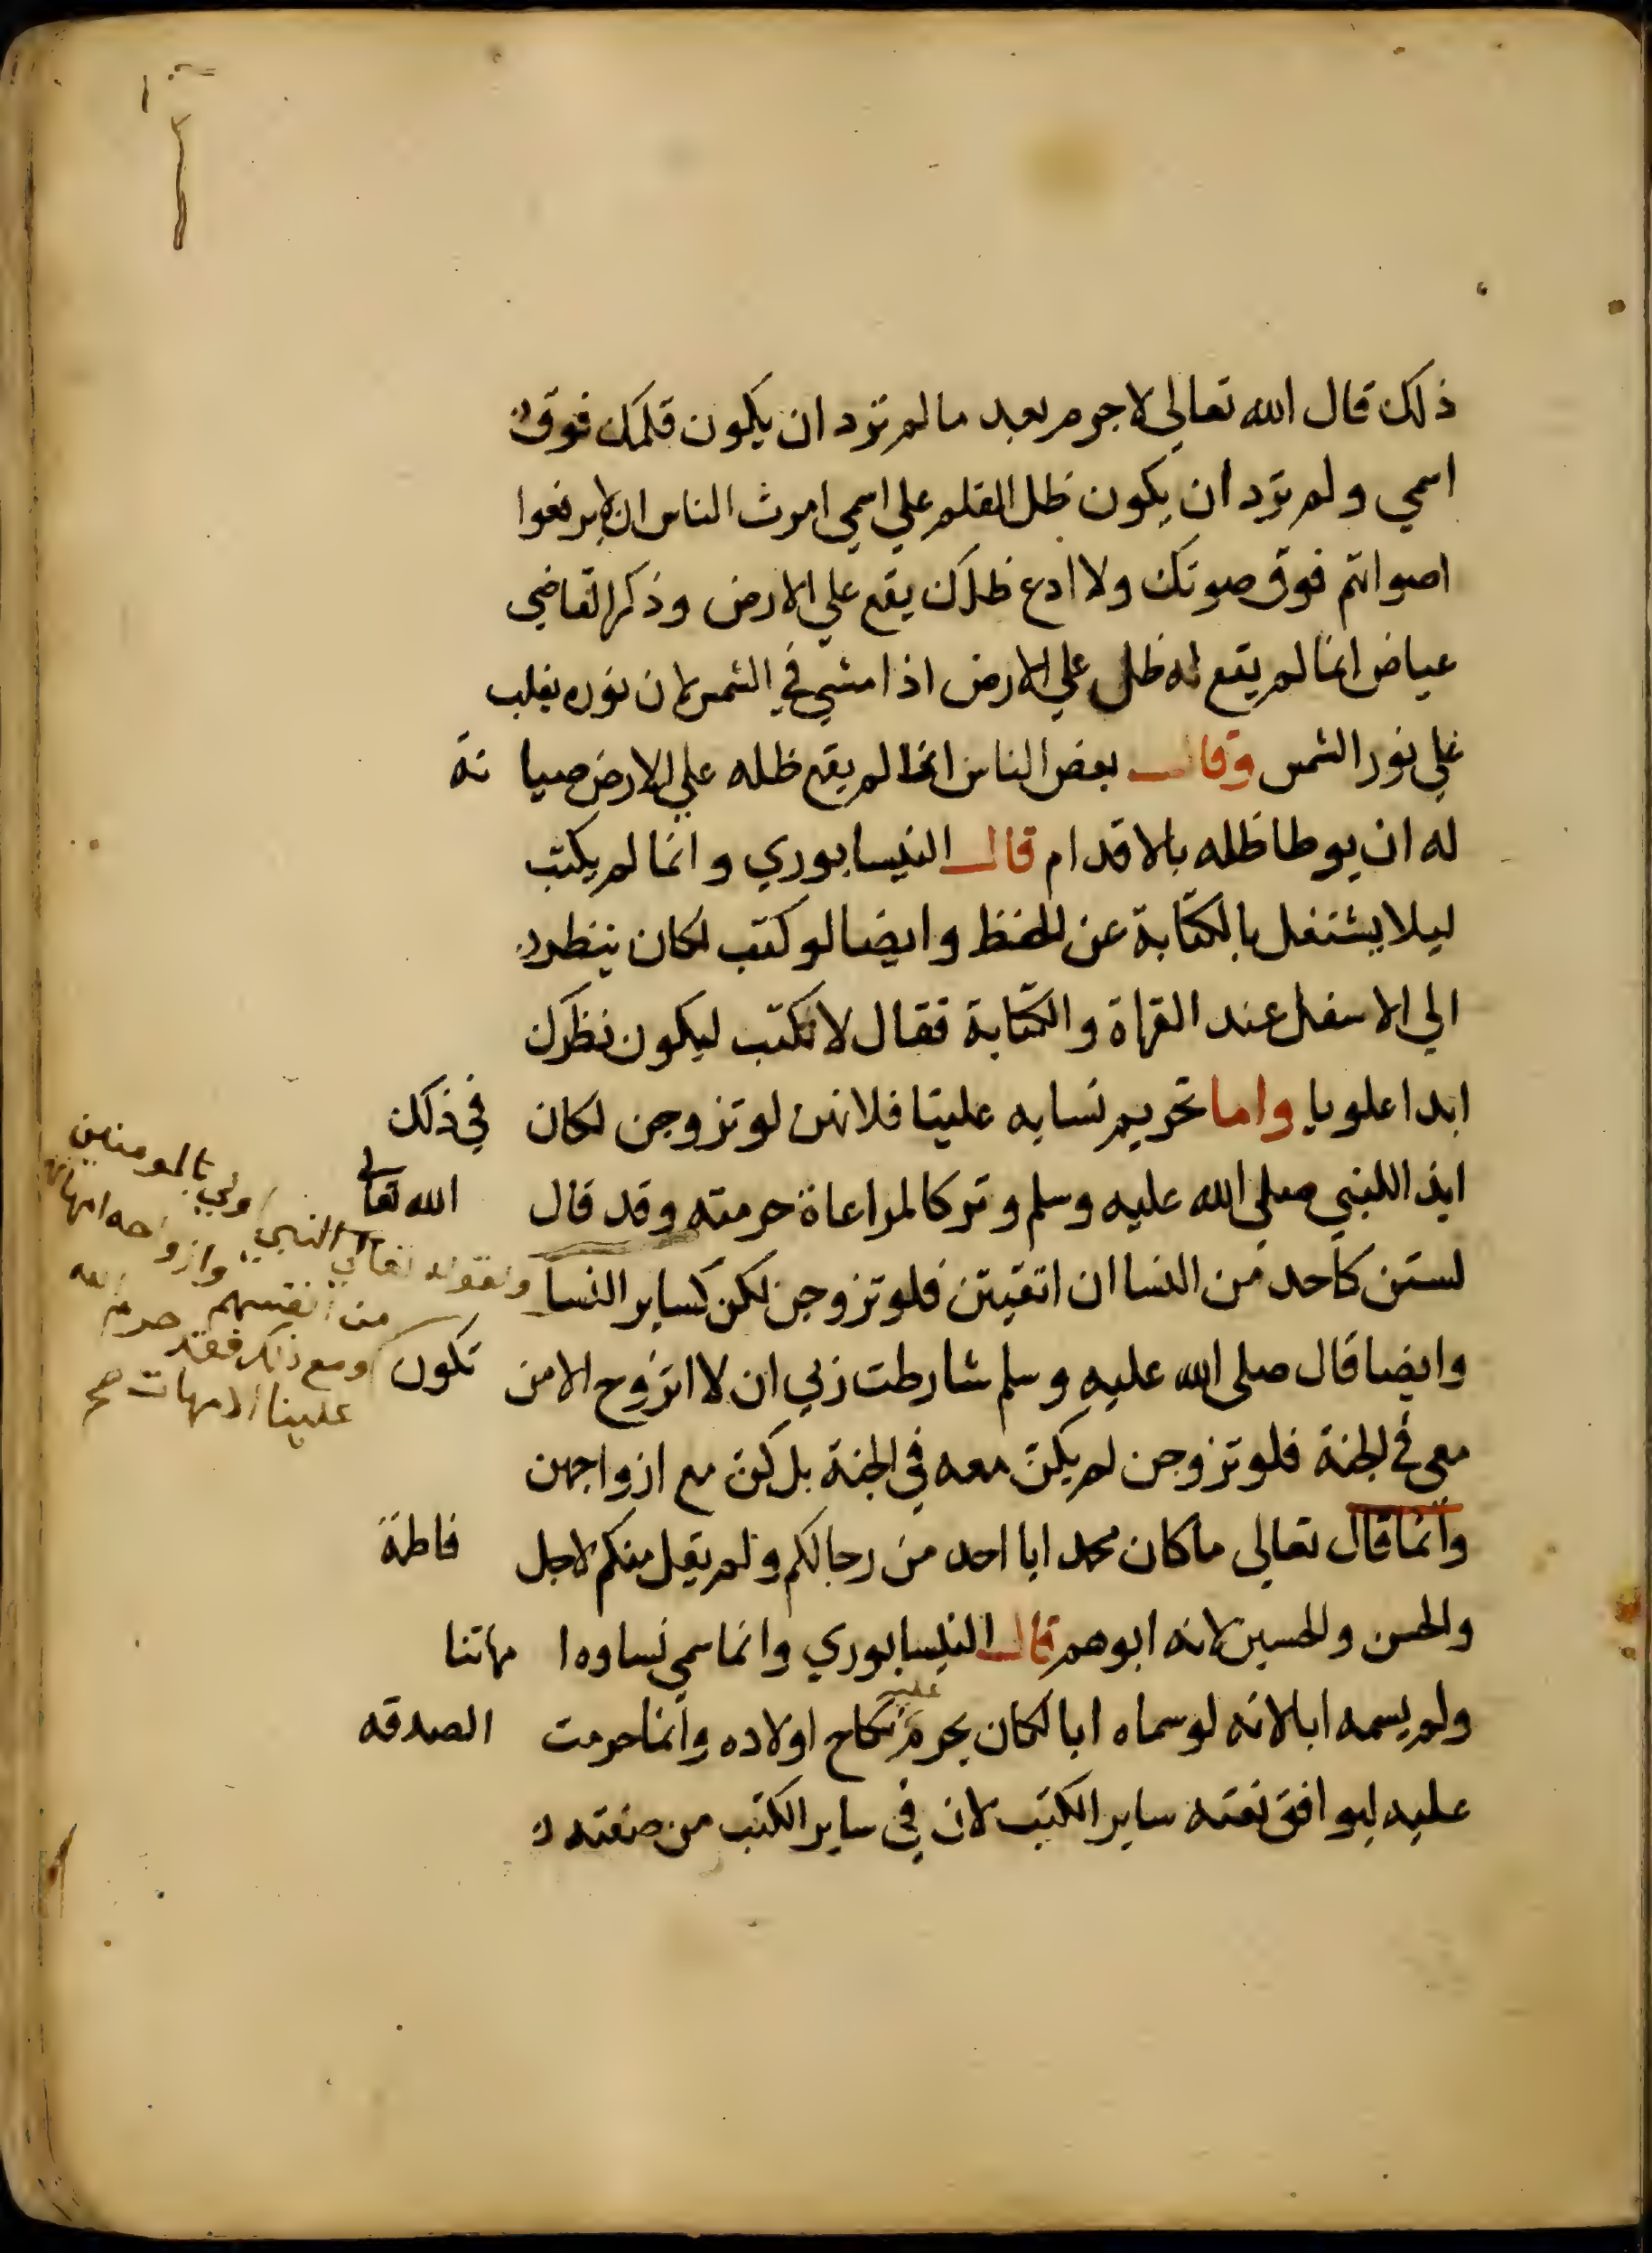 ذلك قال الله تعالي لا جرم بعد ما لم ترد ان يكون قلمك فوق
اسمي ولم ترد ان يكون ظل القلم علي اسمي امرت الناس ان لا يرفعوا
اصواتهم فوق صوتك ولا ادع ظلك يقع علي الارض وذكر القاضي
عياض انما لم يقع له ظل علي الارض اذا مشي في الشمس لان نوره يغلب
علي نور الشمس وقال بعض الناس انما لم يقع ظله علي الارض صيانة
له ان يوطا ظله بالاقدام قال النيسابوري وانما لم يكتب
ليلا يشتغل بالكتابة عن الحفظ وايضا لو كتب لكان ينظر
الي الاسفل عند القراة والكتابة فقال لا تكتب ليكون نظرك
ابدا علويا واما تحريم نسايه علينا فلانهن لو تزوجن لكان في ذلك
ايذا للنبي صلي الله عليه وسلم وتركا لمراعاة حرمته وقد قال الله تعالي
لستن كاحد من النسا ان اتقيتن فلو تزوجن لكن كساير النسا
وايضا قال صلي الله عليه وسلم شارطت ربي ان لا اتزوج الا من تكون
معي في الجنة فلو تزوجن لم يكن معه في الجنة بل كن مع ازواجهن
وانما قال تعالي ما كان محمد ابا احد من رجالكم ولم يقل منكم لاجل فاطمة
والحسن والحسين لانه ابوهم قال النيسابوري وانما سمي نساوه امهاتنا
ولم يسمه ابا لانه لو سماه ابا لكان يحرم عليه نكاح اولاده وانما حرمت الصدقه
عليه ليوافق نعته ساير الكتب لان في ساير الكتب من صفته
ولقوله تعالي النبي اولي بالمومنين
من انفسهم وازواجه امهاتهم
ومع ذلك فقد حرم الله
علينا الامهات صح